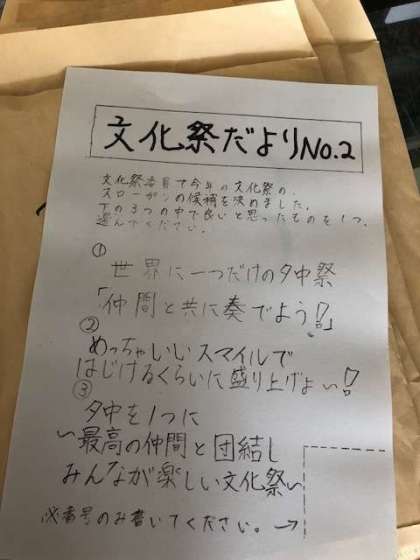 文化祭だよりNo.2
文化祭委員で今年の文化祭の、
スローガンの候補を決めました。
下の3つの中で良いと思ったものを1つ、
選んでください。
①
世界に一つだけの夕中祭
「仲間と共に奏でよう!」
②
めっちゃいいスマイルで
はじけるくらいに盛り上げよい!
③
夕中を1つに
〜最高の仲間と団結し
みんなが楽しい文化祭〜
※番号のみ書いてください。→